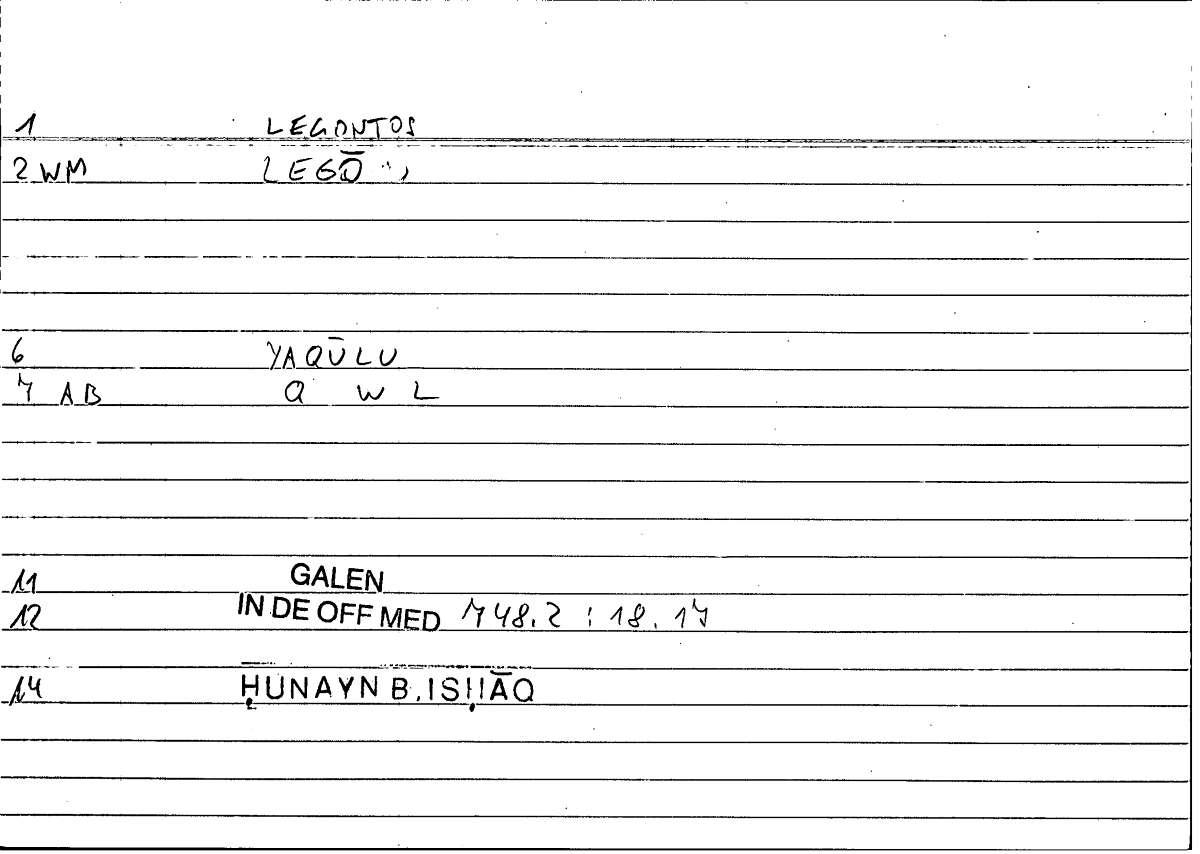 1 LEGONTOS
2 WM LEGŌ
6 YAQŪLU
7 AB Q W L
11 GALEN
12 IN DE OFF MED 748.2 : 18.17
14 ḤUNAYN B. ISḤĀQ